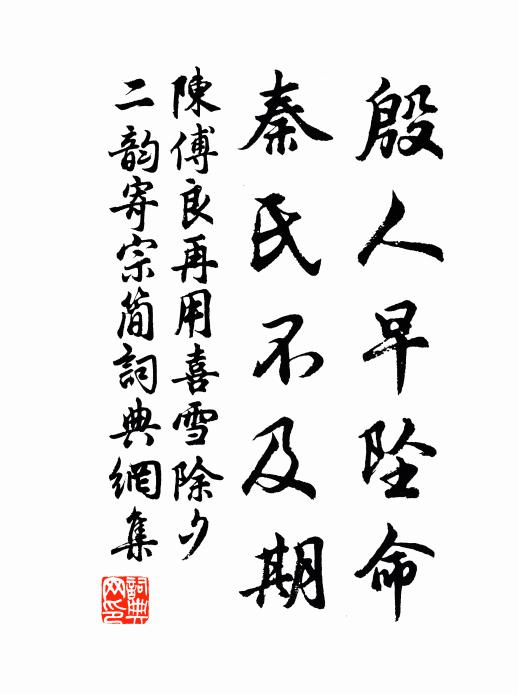 殷人早坠命
秦氏不及期
陳傅良再用喜雪除夕
二韵寄宗简詞典網集
詞典网印